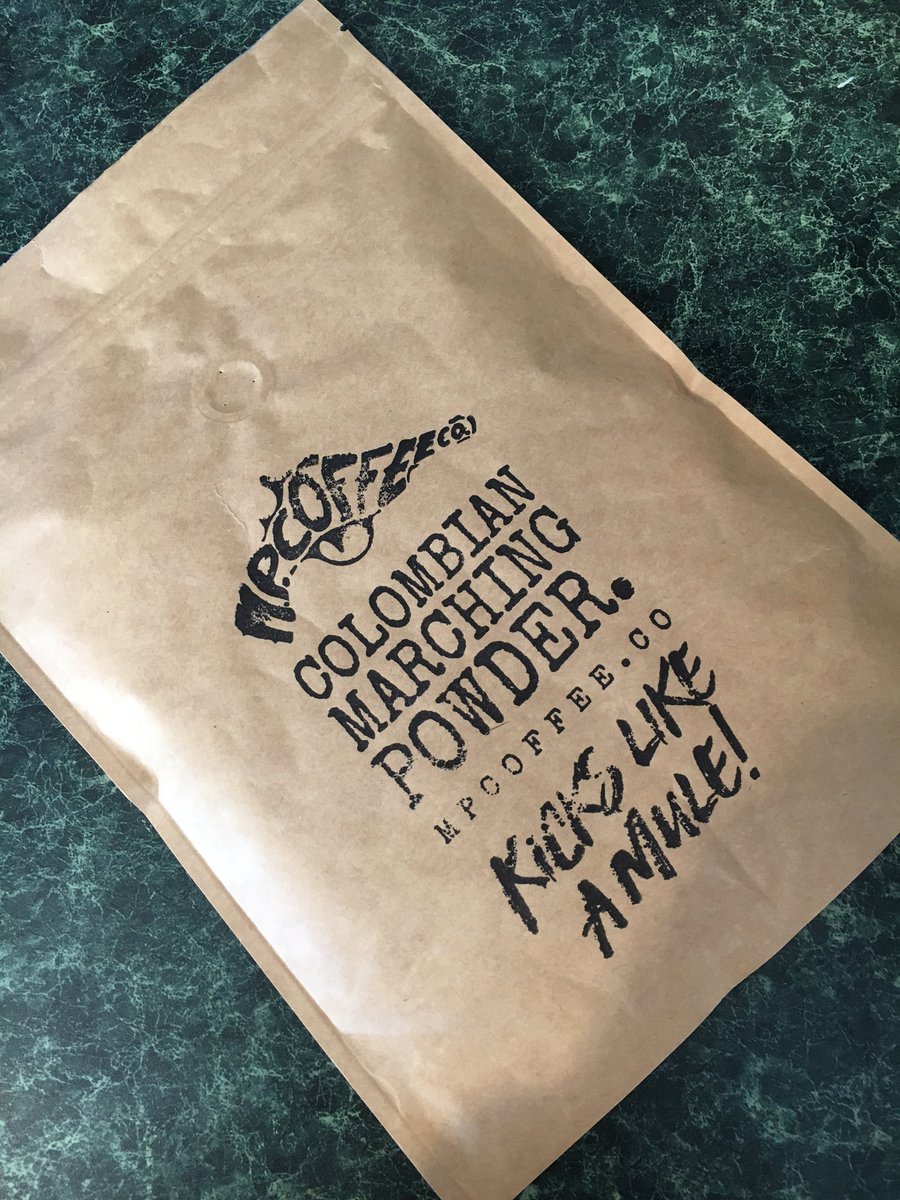 M.P. COFFEE Co)
COLOMBIAN
MARCHING
POWDER.
MPCOFFEE.CO
KiCKS LIKE
A MULE!